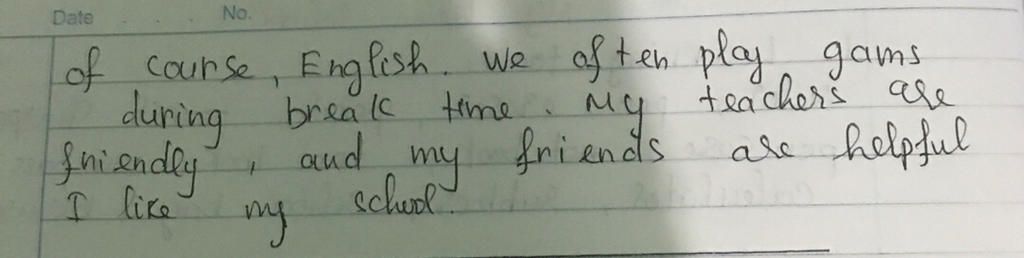 Date No.
of course, English. We often play gams
during break time. My teachers are
friendly, and my friends are helpful
I like my school.